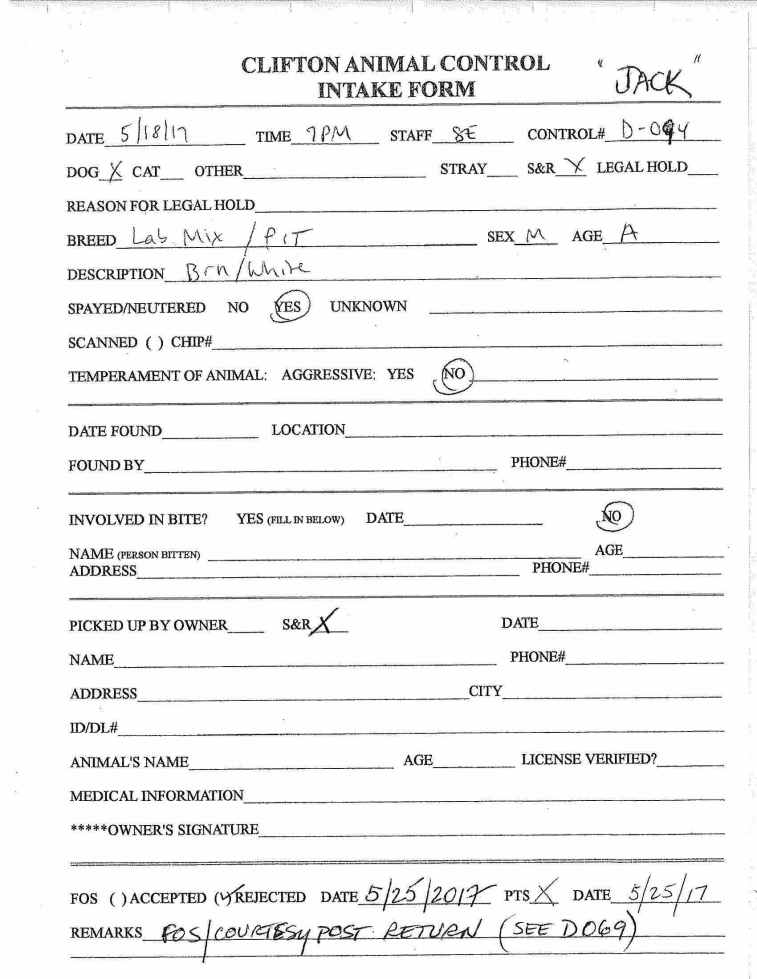 CLIFTON ANIMAL CONTROL "JACK"
INTAKE FORM
DATE 5/18/17 TIME 7PM STAFF SE CONTROL# D-094
DOG X CAT___ OTHER___ STRAY___ S&R X LEGAL HOLD___
REASON FOR LEGAL HOLD___
BREED Lab Mix / PIT SEX M AGE A
DESCRIPTION Brn/White
SPAYED/NEUTERED NO YES UNKNOWN ___
SCANNED ( ) CHIP#___
TEMPERAMENT OF ANIMAL: AGGRESSIVE: YES NO___
DATE FOUND___ LOCATION___
FOUND BY___ PHONE#___
INVOLVED IN BITE? YES (FILL IN BELOW) DATE___ NO
NAME (PERSON BITTEN) ___ AGE___
ADDRESS___ PHONE#___
PICKED UP BY OWNER___ S&R X DATE___
NAME___ PHONE#___
ADDRESS___ CITY___
ID/DL#___
ANIMAL'S NAME___ AGE___ LICENSE VERIFIED?___
MEDICAL INFORMATION___
*****OWNER'S SIGNATURE___
FOS ( ) ACCEPTED (✓) REJECTED DATE 5/25/2017 PTS X DATE 5/25/17
REMARKS FOS/COURTESY POST RETURN (SEE D069)